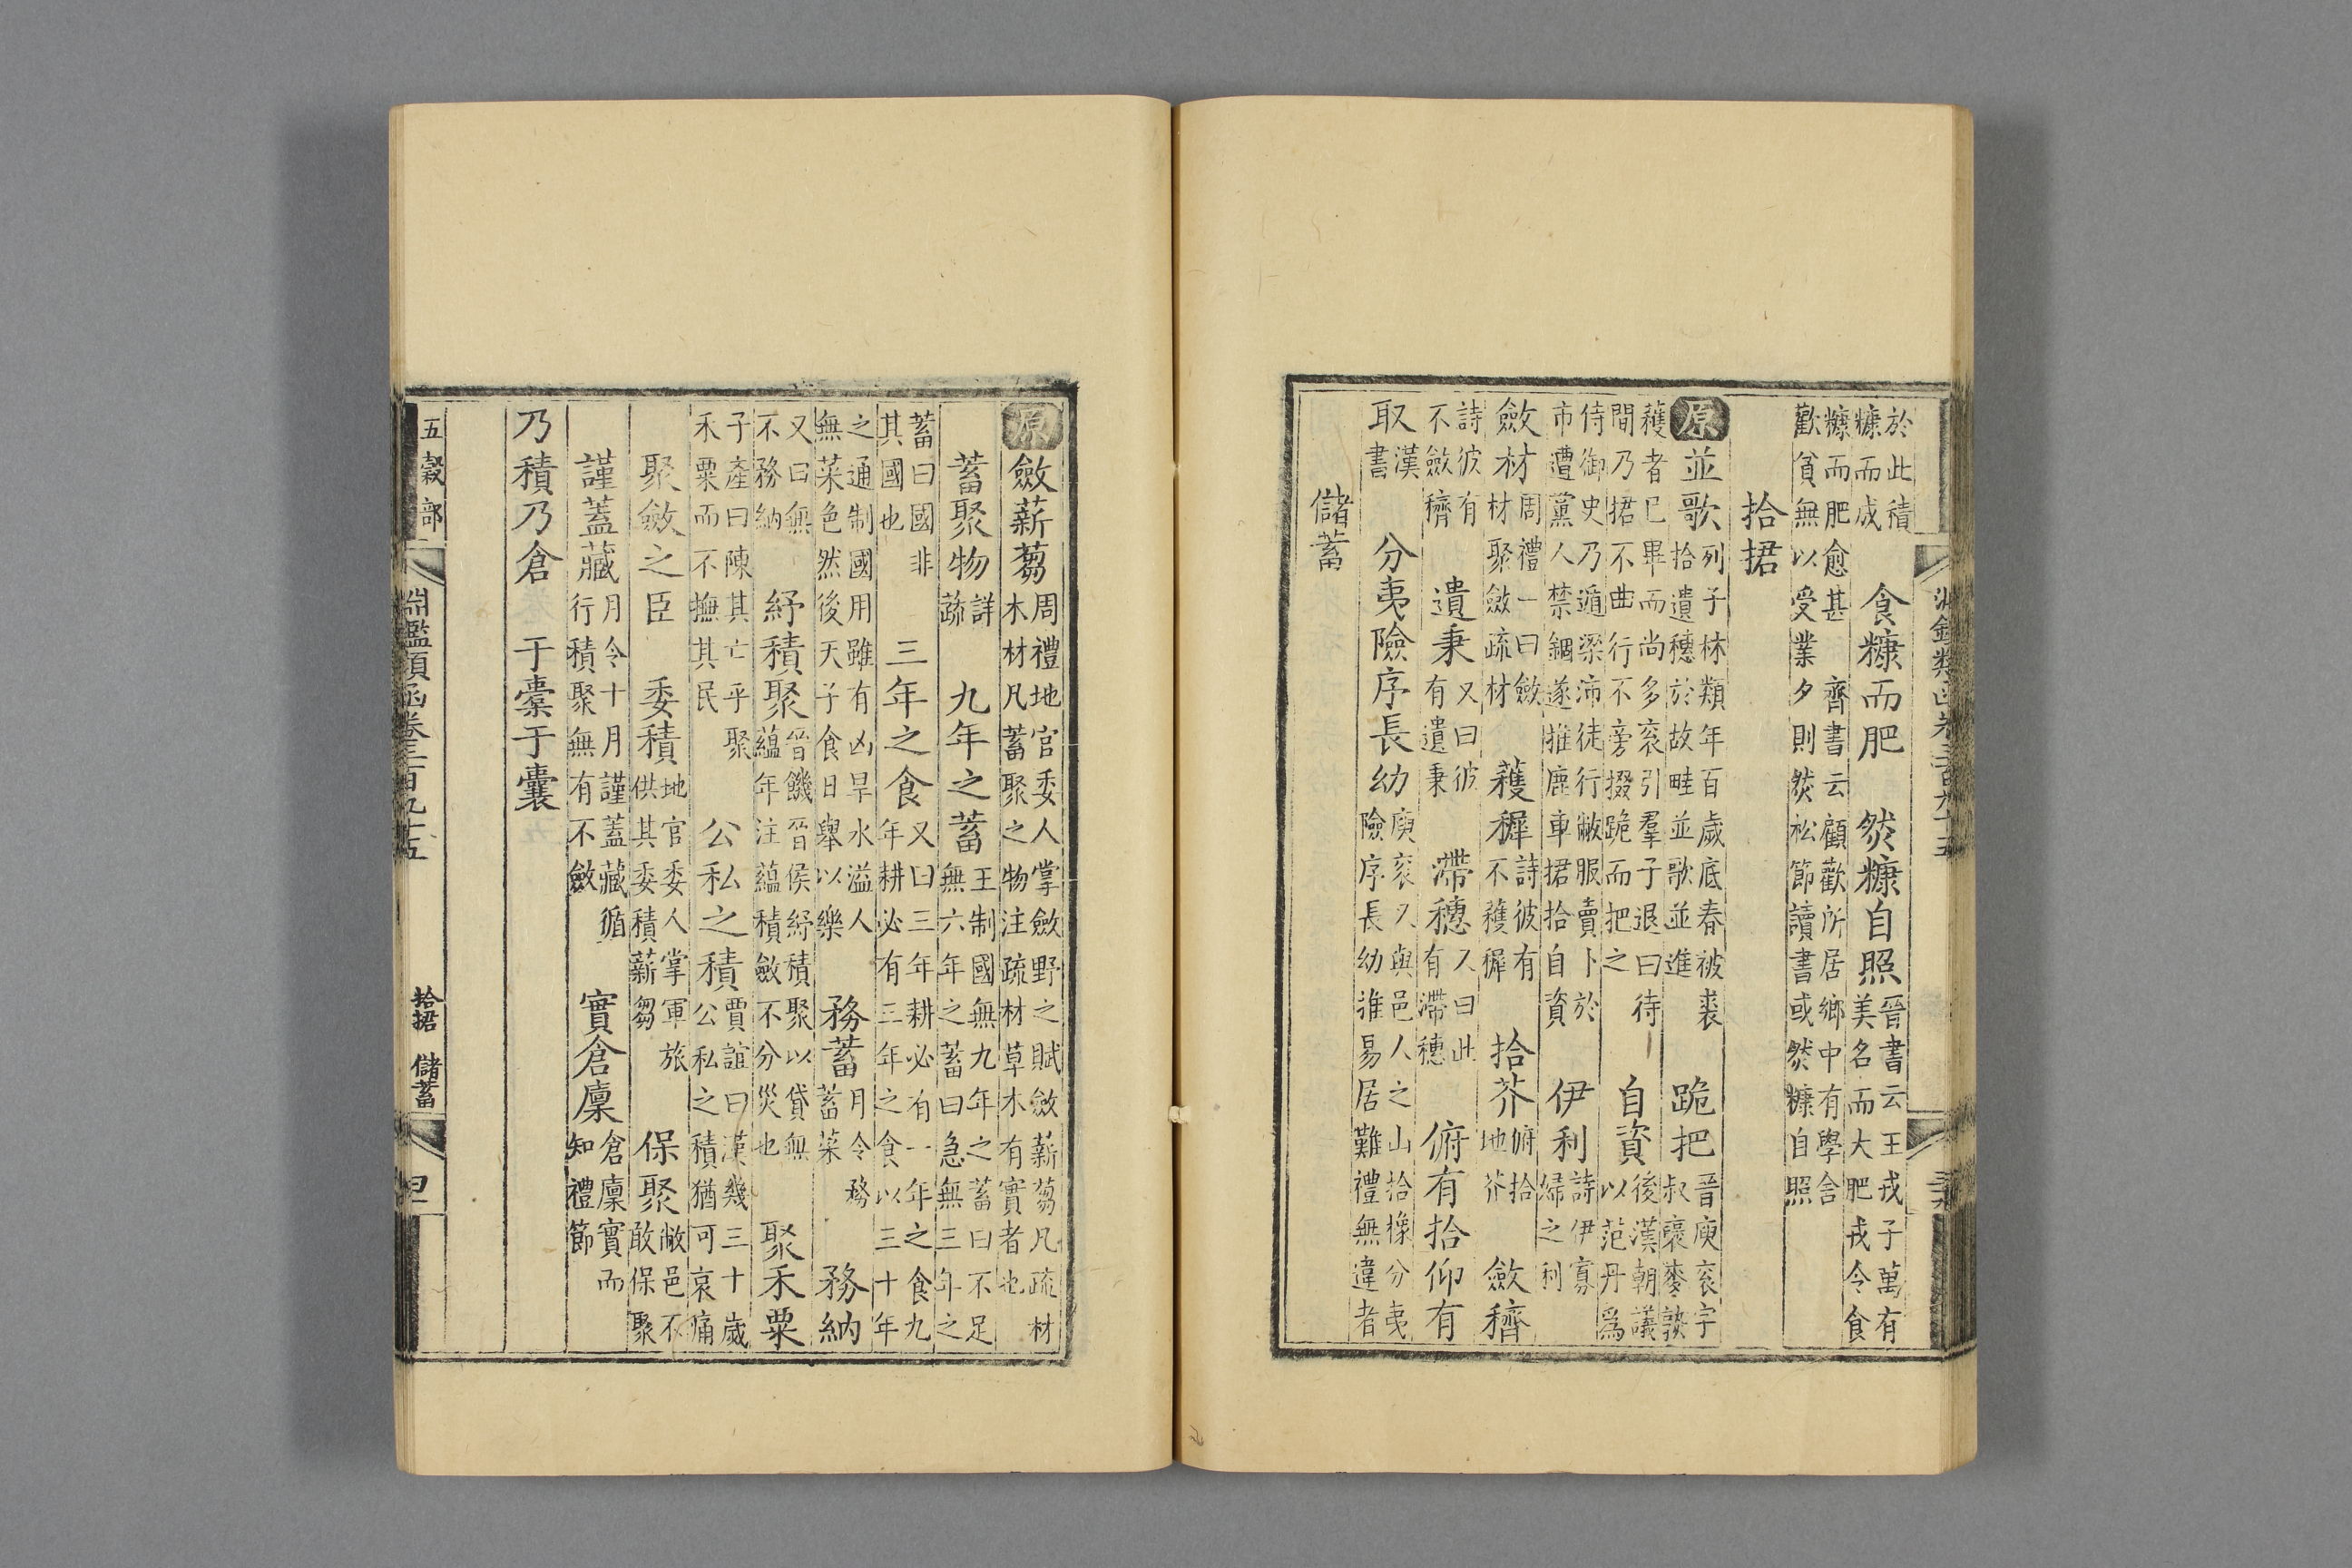 淵鑑類函卷三百九十五
於此積糠而成 食糠而肥 然糠自照 晉書云王戎子萬有美名而大肥戎令食
糠而肥愈甚 齊書云顧歡所居鄉中有學舍歡貧無以受業夕則然松節讀書或然糠自照
拾捃
原 並歌 列子林類年百歲底春被裘拾遺穗於故畦並歌並進 跪把 晉庾袞字叔褒麥熟
穫者已畢而尚多袞引羣子退曰待間乃捃不曲行不旁掇跪而把之 自資 後漢朝議以范丹爲
侍御史乃遁梁沛徒行敝服賣卜於市遭黨人禁錮遂推鹿車捃拾自資 伊利 詩伊寡婦之利
斂材 周禮一曰斂材聚斂疏材 穫穉 詩彼有不穫穉 拾芥 俯拾地芥 斂穧
詩彼有不斂穧 遺秉 又曰彼有遺秉 滯穗 又曰此有滯穗 俯有拾仰有
取 漢書 分夷險序長幼 庾袞又與邑人之山拾橡分夷險序長幼推易居難禮無違者
儲蓄
原 斂薪蒭 周禮地官委人掌斂野之賦斂薪蒭凡疏材木材凡蓄聚之物注疏材草木有實者也
蓄聚物 詳蔬 九年之蓄 王制國無九年之蓄曰不足無六年之蓄曰急無三年之
蓄曰國非其國也 三年之食 又曰三年耕必有一年之食九年耕必有三年之食以三十年
之通制國用雖有凶旱水溢人無菜色然後天子食日舉以樂 務蓄 月令務蓄菜 務納
又曰無不務納 紓積聚 晉饑晉侯紓積聚以貸無蘊年注蘊積斂不分災也 聚禾粟
子產曰陳其亡乎聚禾粟而不撫其民 公私之積 賈誼曰漢幾三十歲公私之積猶可哀痛
聚斂之臣 委積 地官委人掌軍旅供其委積薪芻 保聚 敝邑不敢保聚
謹蓋藏 月令十月謹蓋藏循行積聚無有不斂 實倉廩 倉廩實而知禮節
乃積乃倉 于橐于囊
五穀部 淵鑑類函卷三百九十五 拾捃 儲蓄